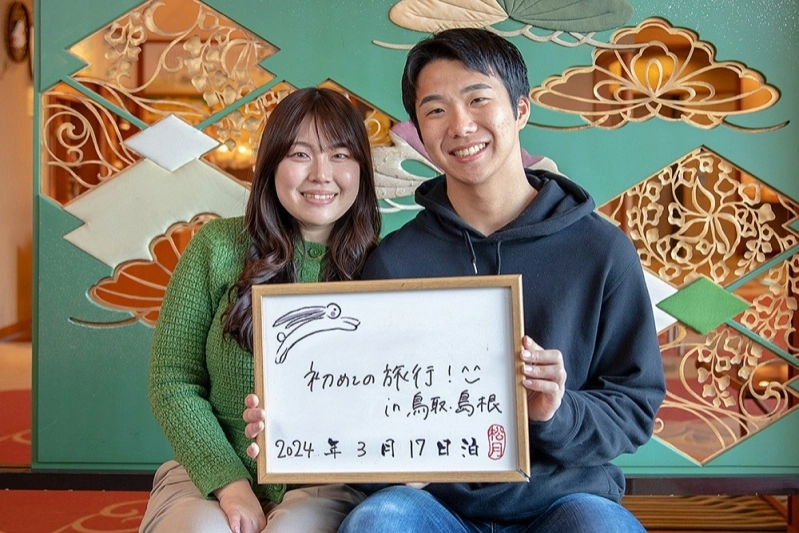 初めての旅行！^^
in 鳥取・島根
2024 年 3 月 17 日 泊
松月